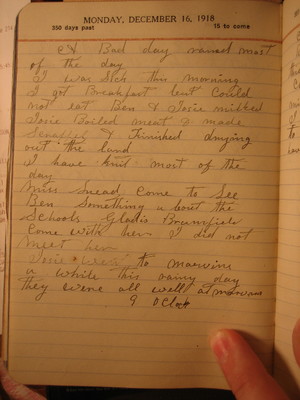 MONDAY, DECEMBER 16, 1918
350 days past 15 to come
Bad day rained most
of the day
I was Sick this morning
I got Breakfast but Could
not eat Ben & Josie milked
Josie Boiled meat & made
& Finished drying
out the land
I have knit most of the
day
Miss Snead Come to See
Ben Something a bout the
Schools Gladis Brumfield
Come with her I did not
meet her
Josie went to marvins
a while this rainy day
they were all well at marvins
9 O Clock